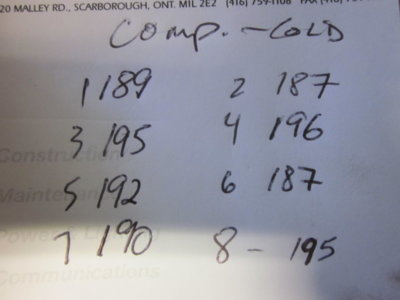 20 MALLEY RD., SCARBOROUGH, ONT. M1L 2E2 (416) 759-1108
COMP. - COLD
1 189 2 187
3 195 4 196
Construction
5 192 6 187
7 190 8 - 195
Communications